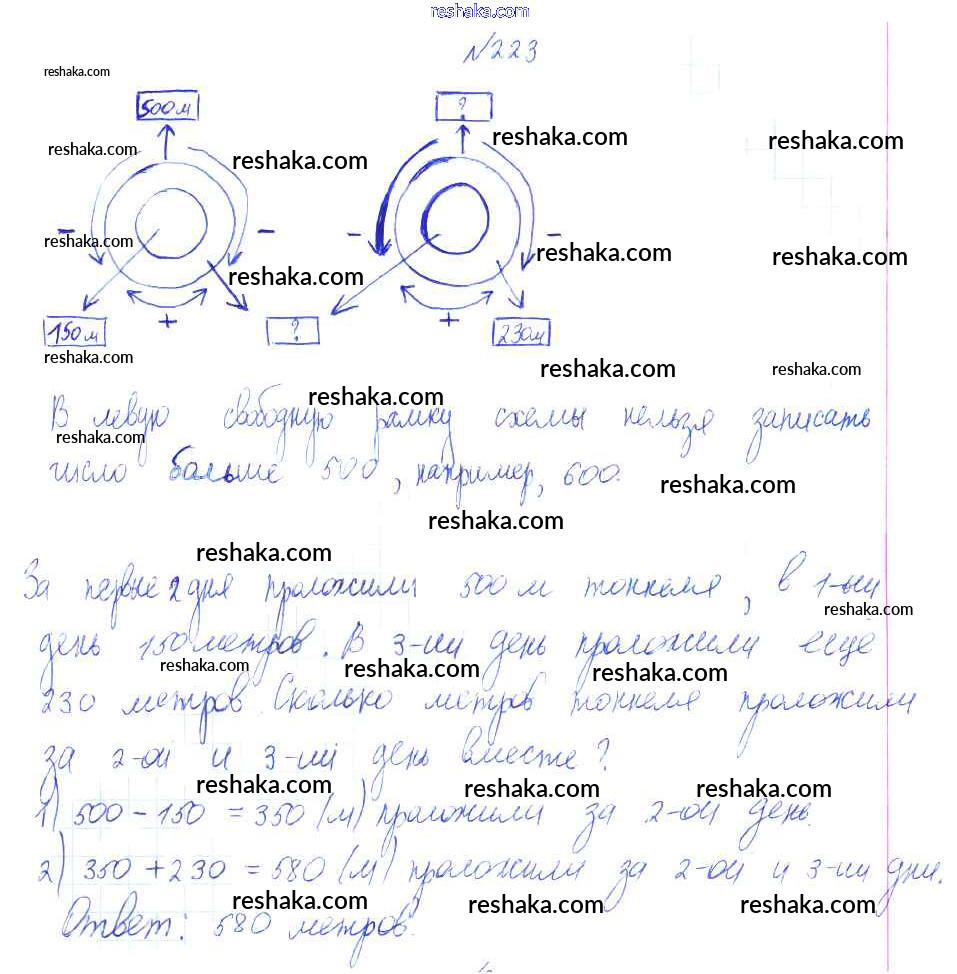 reshaka.com
№223
reshaka.com
500м ?
reshaka.com reshaka.com
reshaka.com reshaka.com
- - - -
reshaka.com reshaka.com reshaka.com
reshaka.com
+ +
150м ? 230м
reshaka.com reshaka.com reshaka.com
reshaka.com
В левую свободную рамку схемы нельзя записать
reshaka.com
число больше 500, например, 600.
reshaka.com
reshaka.com
reshaka.com
За первые 2 дня проложили 500 м тоннеля, в 1-ый
reshaka.com
день 150 метров. В 3-ий день проложили еще
reshaka.com reshaka.com reshaka.com
230 метров. Сколько метров тоннеля проложили
за 2-ой и 3-ий день вместе?
reshaka.com reshaka.com reshaka.com
1) 500 - 150 = 350 (м) проложили за 2-ой день.
2) 350 + 230 = 580 (м) проложили за 2-ой и 3-ий дни.
reshaka.com reshaka.com reshaka.com
Ответ: 580 метров.